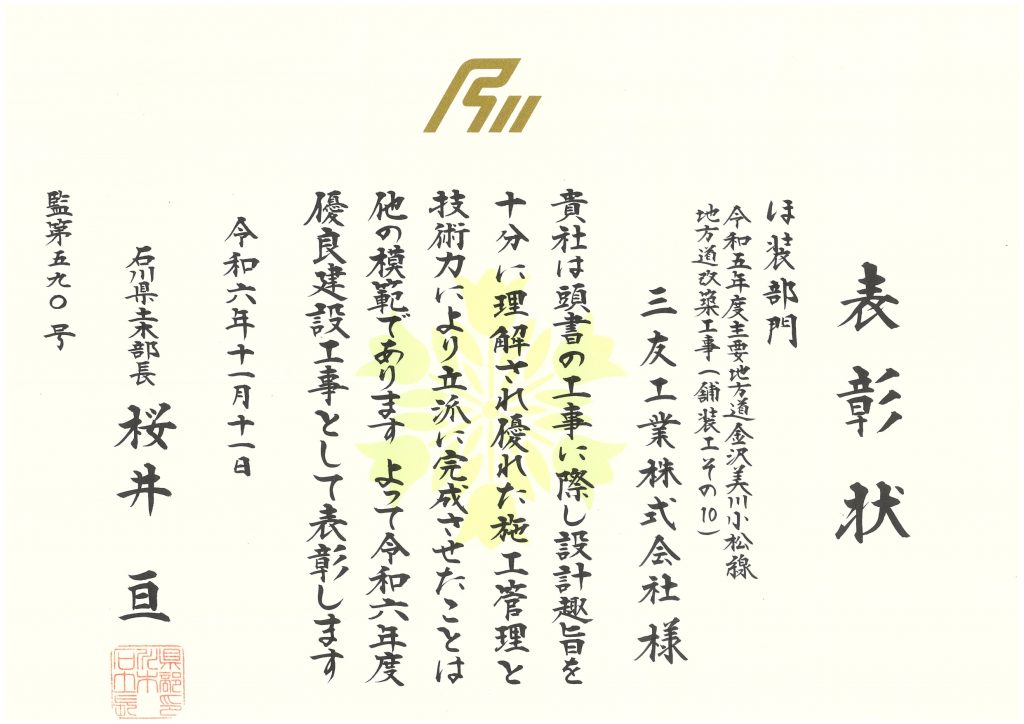 表彰状
ほ装部門
令和五年度主要地方道金沢美川小松線
地方道改築工事(舗装工その10)
三友工業株式会社様
貴社は頭書の工事に際し設計趣旨を
十分に理解され優れた施工管理と
技術力により立派に完成させたことは
他の模範であります よって令和六年度
優良建設工事として表彰します
令和六年十一月十一日
石川県土木部長 桜井 亘
監第五九〇号